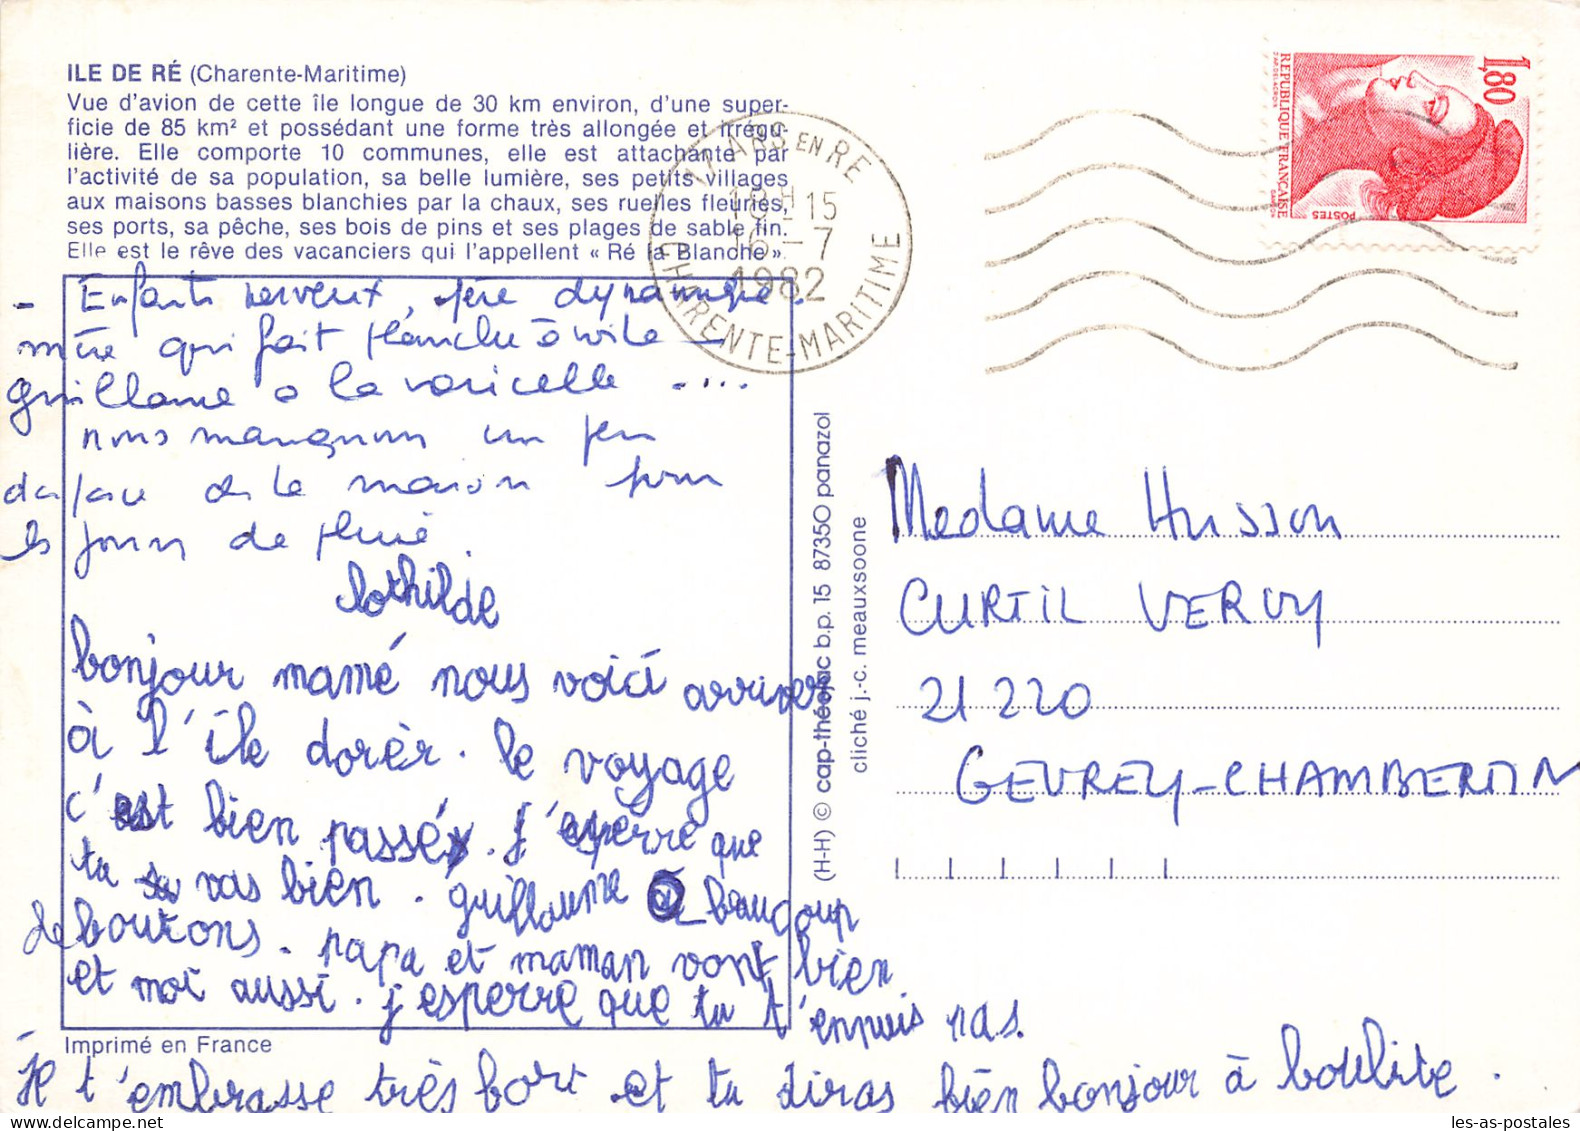 ILE DE RÉ (Charente-Maritime)
Vue d'avion de cette île longue de 30 km environ, d'une super-
ficie de 85 km² et possédant une forme très allongée et irrégu-
lière. Elle comporte 10 communes, elle est attachante par
l'activité de sa population, sa belle lumière, ses petits villages
aux maisons basses blanchies par la chaux, ses ruelles fleuries,
ses ports, sa pêche, ses bois de pins et ses plages de sable fin.
Elle est le rêve des vacanciers qui l'appellent « Ré la Blanche ».
- Enfants nerveux, père dynamique.
mère qui fait planche à voile -
guillaume a la varicelle - ....
nous manquons un peu
de place de la maison pour
les jours de pluie.
lothilde
bonjour mamé nous voici arriver
à l'île dorér. le voyage
c'est bien passé. j'esperre que
tu vas bien. guillaume a beaucoup
de boutons. papa et maman vont bien
et moi aussi. j'esperre que tu t'ennuis pas.
Je t'embrasse très fort et tu diras bien bonjour à boulite.
Imprimé en France
(H-H) © cap-théojac b.p. 15 87350 panazol
cliché j.-c. meauxsoone
17 ARS EN RE
18H15
16-7
1982
CHARENTE-MARITIME
1,80
REPUBLIQUE FRANÇAISE
POSTES
Madame Husson
CURTIL VERGY
21220
GEVREY-CHAMBERTIN
les-as-postales